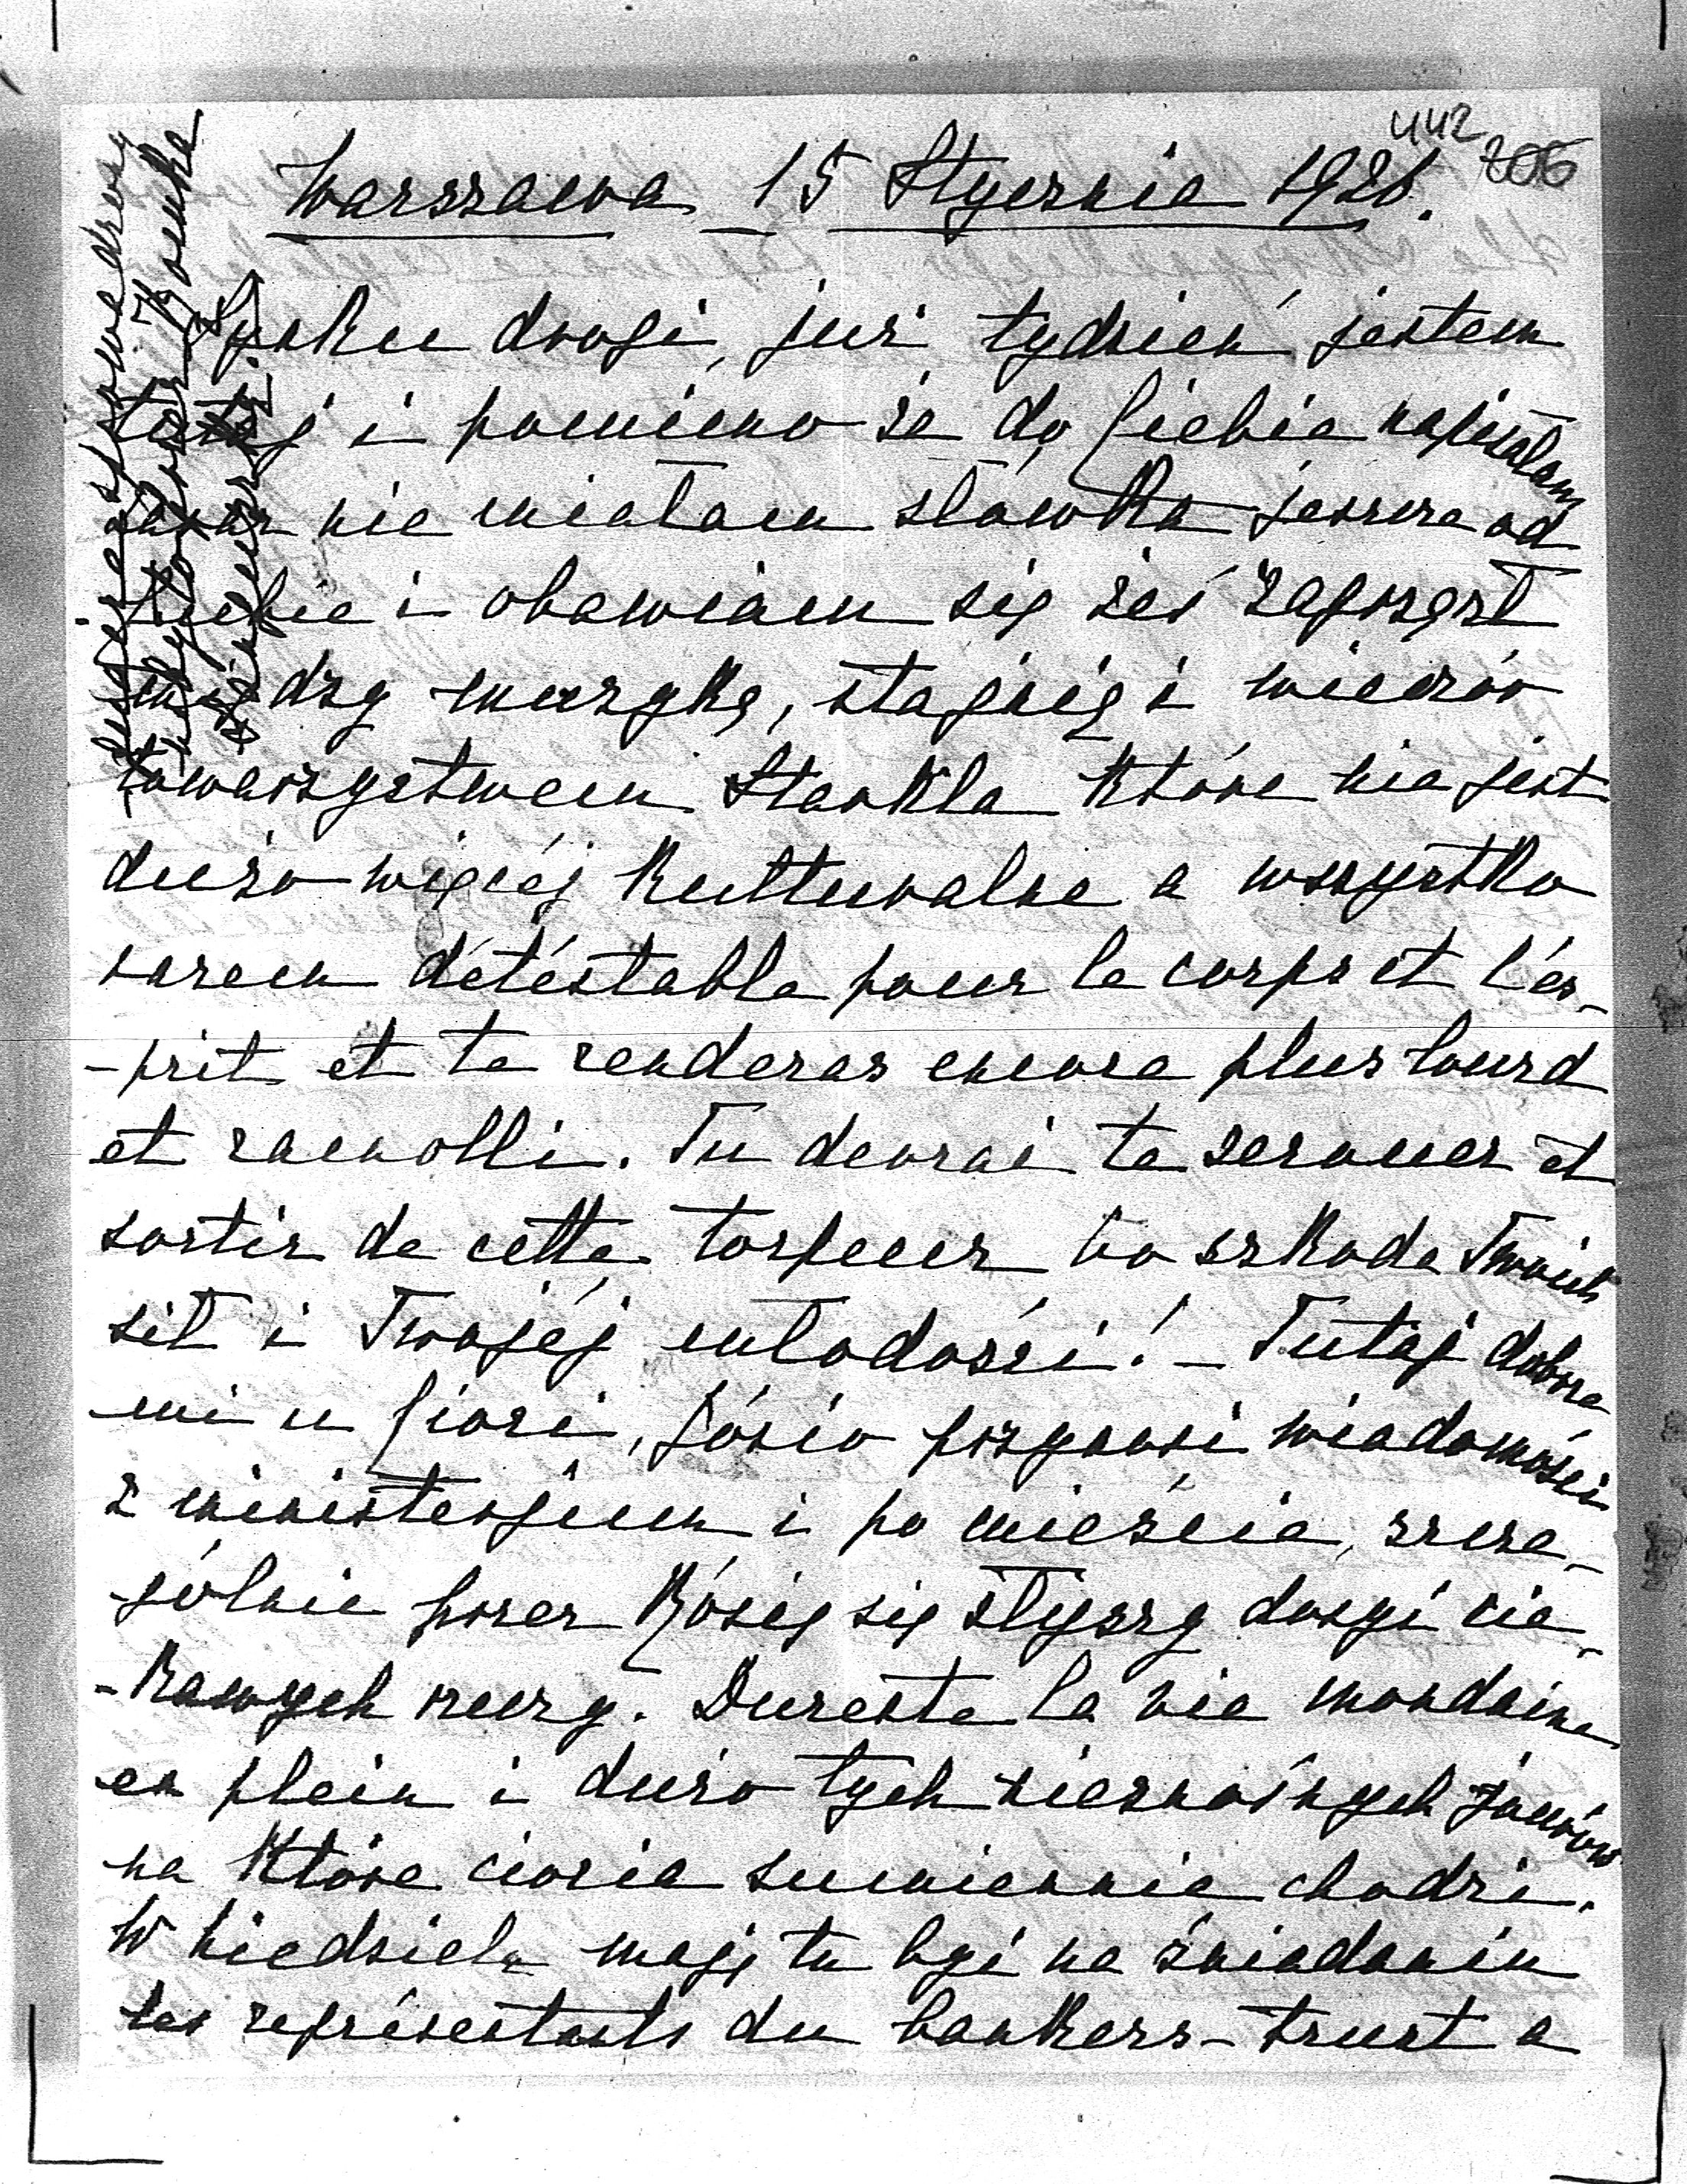 442
206
Warszawa 15 Stycznia 1926.
Synku drogi, już tydzień jestem
tutaj i pomimo że do Ciebie napisałam
nie miałam słówka jeszcze od
Ciebie i obawiam się żeś zagrząsł
między muzyką, stajnią i wieczór
towarzystwem Starkla które nie jest
dużo więcéj kulturalne a wszystko
razem détéstable pour le corps et l'es-
-prit et te renderas encore plus lourd
et ramolli. Tu devrai te secouer et
sortir de cette torpeur bo szkoda Twoich
sił i Twojéj młodości! – Tutaj dobrze
mi u Cioci, Józio przynosi wiadomości
z ministerjum i po mieście, szcze-
gólnie przez Rózię się słyszy dosyć cie-
-kawych rzeczy. Dureste la vie mondaine
en plein i dużo tych nieznośnych jourów
na które ciocia sumiennie chodzi.
W Niedziele mają tu być na śniadaniu
les représentants du bankers-trust a